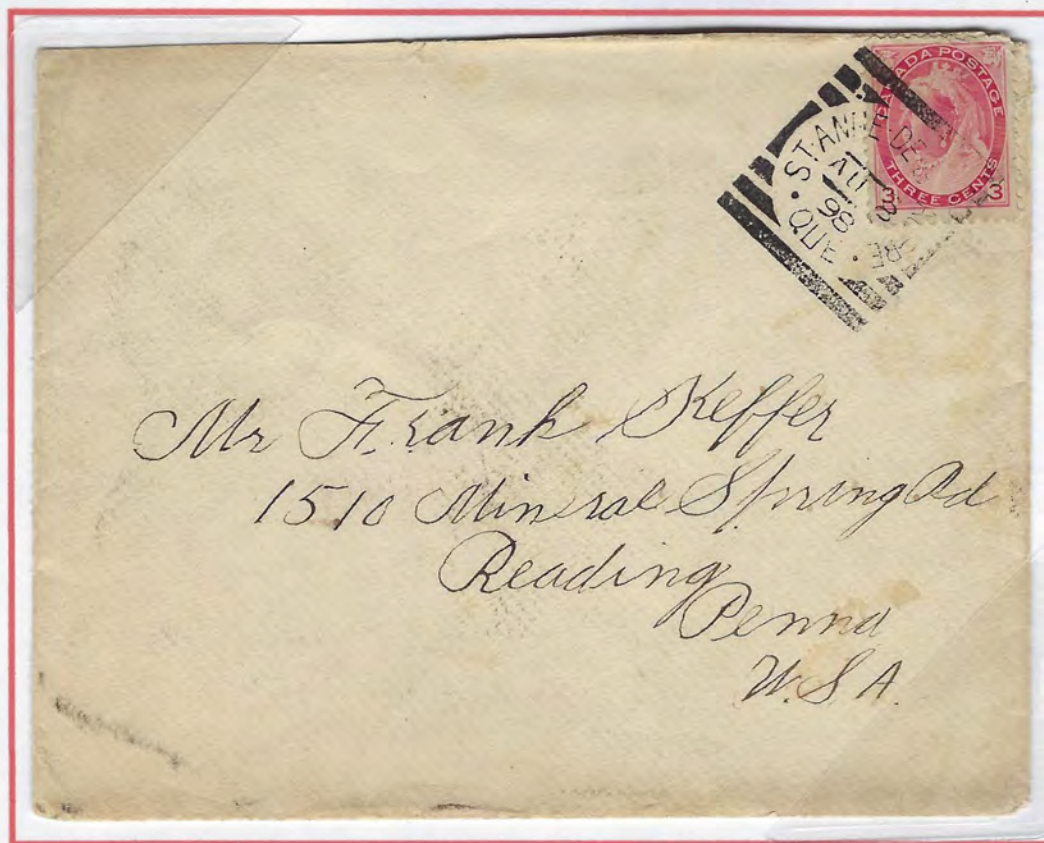 CANADA POSTAGE
THREE CENTS
3 3
STANNE DE
RE
AU 3
98
QUE
Mr Frank Keffer
1510 Mineral Spring Rd
Reading
Penna
U.S A.